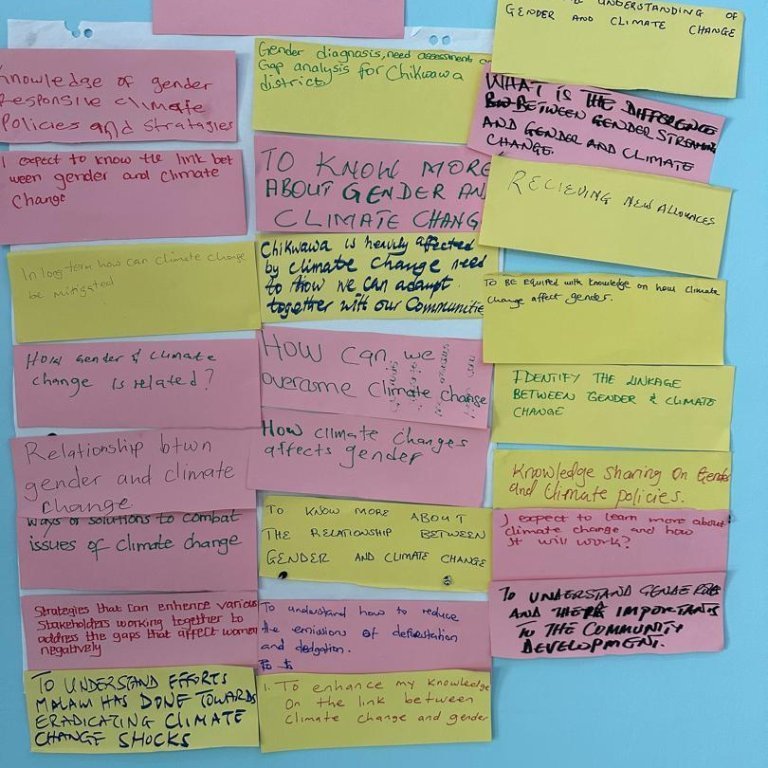 Knowledge of gender
Responsive climate
Policies and strategies
I expect to know the link bet
ween gender and climate
change
In long term how can climate change
be mitigated
How Gender & climate
change is related?
Relationship btwn
gender and climate
change
ways or solutions to combat
issues of climate change
Strategies that can enhance various
stakeholders working together to
address the gaps that affect women
negatively
TO UNDERSTAND EFFORTS
MALAWI HAS DONE TOWARDS
ERADICATING CLIMATE
CHANGE SHOCKS
Gender diagnosis, need assessment or
Gap analysis for Chikwawa
district
TO KNOW MORE
ABOUT GENDER AN
CLIMATE CHANG
Chikwawa is heavily affected
by climate change need
to how we can adapt
together with our Communitie
How can we
overcome climate change
How climate changes
affects gender
TO KNOW MORE ABOUT
THE RELATIONSHIP BETWEEN
GENDER AND CLIMATE CHANGE
To understand how to reduce
the emissions of deforestation
and
1. To enhance my knowledge
on the link between
climate change and gender
UNDERSTANDING OF
GENDER AND CLIMATE CHANGE
WHAT IS THE DIFFERENCE
BETWEEN GENDER
AND GENDER AND CLIMATE
CHANGE.
RECIEVING NEW ALLOWANCES
TO BE equiped with knowledge on how climate
change affect gender.
IDENTIFY THE LINKAGE
BETWEEN GENDER & CLIMATE
CHANGE
Knowledge sharing on Gender
and climate policies.
I expect to learn more about
climate change and how
It will work?
TO UNDERSTAND GENDER
AND IMPORTANTS
TO THE COMMUNITY
DEVELOPMENT.